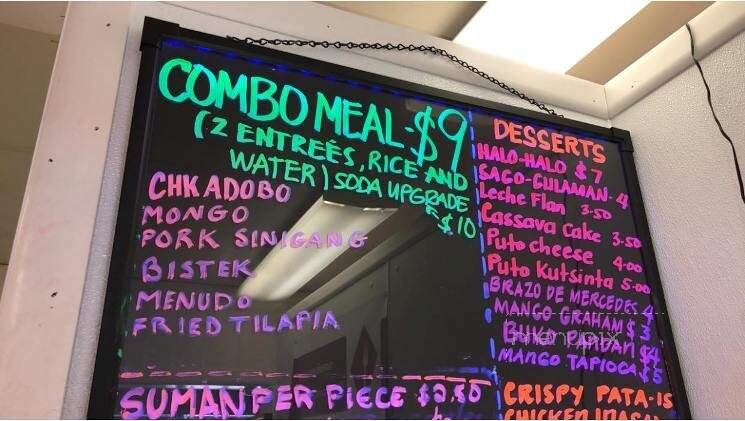 COMBO MEAL-$9
(2 ENTREES, RICE AND
WATER) SODA UPGRADE
$10
CHKADOBO
MONGO
PORK SINIGANG
BISTEK
MENUDO
FRIED TILAPIA
SUMAN PER PIECE $2.50
DESSERTS
HALO-HALO $7
SAGO-GULAMAN-4
Leche Flan 3.50
Cassava Cake 3.50
Puto cheese 4.00
Puto Kutsinta 5.00
BRAZO DE MERCEDES 4
MANGO GRAHAM $3
BUKO PANDAN $4
MANGO TAPIOCA $5
CRISPY PATA-15
CHICKEN INASAL